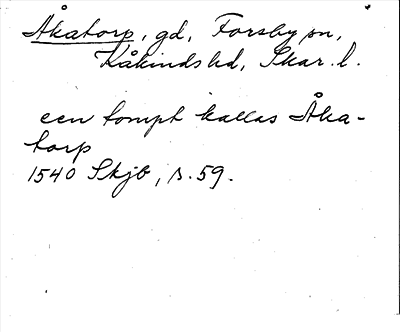 Åkatorp, gd, Forsby sn,
Kåkinds hd, Skar. l.
een tompt kallas Åka-
torp
1540 Skjb, s. 59.